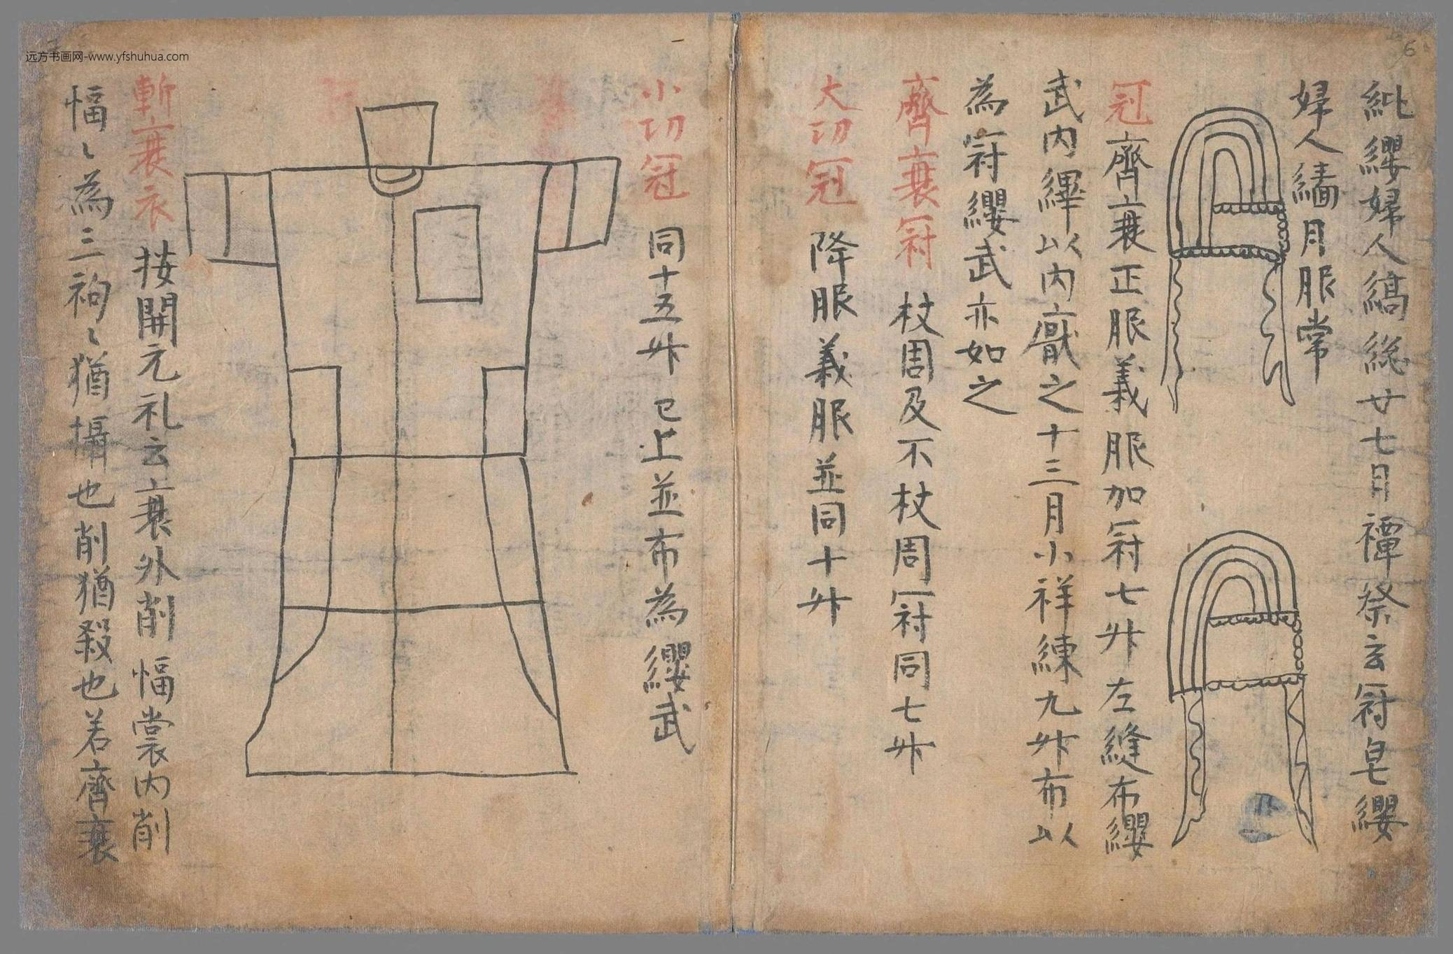 紕纓婦人縞緫廿七月禫祭玄冠皂纓
婦人繣月服常
冠齊衰正服義服加冠七升左縫布纓
武内縪以内厭之十三月小祥練九升布以
為冠纓武亦如之
齊衰冠 杖周及不杖周冠同七升
大功冠 降服義服並同十升
小功冠 同十五升 已上並布為纓武
斬衰衣 按開元礼云衰外削幅裳内削
幅〻為三袧〻猶攝也削猶殺也若齊衰
远方书画网-www.yfshuhua.com
6